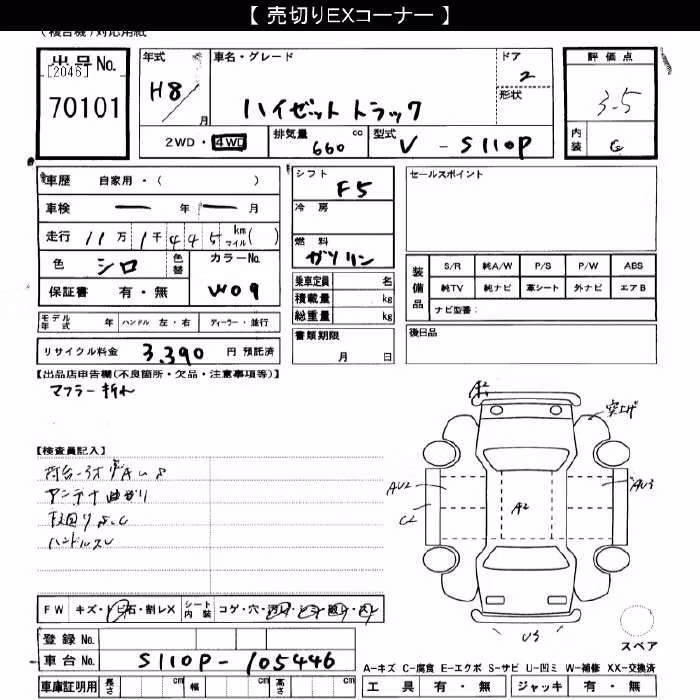 【 売切りEXコーナー 】
(複合機)対応用紙
出品No.
[2046]
70101
年式
H8
月
車名・グレード
ハイゼット トラック
ドア
2
形状
評価点
3.5
内装
2WD・4WD
排気量 660 cc
型式 V - S110P
車歴 自家用・( )
車検 ー 年 ー 月
走行 11万 1千 445 km マイル( )
色 シロ
色替
カラーNo.
W09
保証書 有・無
モデル年式 年 ハンドル 左・右 ディーラー・並行
リサイクル料金 3,390 円 預託済
シフト
F5
冷房
燃料
ガソリン
乗車定員 名
積載量 kg
総重量 kg
書類期限
月 日
セールスポイント
装備品
S/R 純A/W P/S P/W ABS
純TV 純ナビ 革シート 外ナビ エアB
ナビ型番:
後日品
【出品店申告欄(不良箇所・欠品・注意事項等)】
マフラー折れ
【検査員記入】
アンテナ曲がり
A2
突上げ
AU2
AU3
C2
A2
U3
FW キズ・トビ石・割レX シート内装 コゲ・穴・
登録 No.
車台 No. S110P-105446
スペア
A-キズ C-腐食 E-エクボ S-サビ U-凹ミ W-補修 XX-交換済
車庫証明用 長さ cm 幅 cm 高さ cm
工具 有・無 ジャッキ 有・無